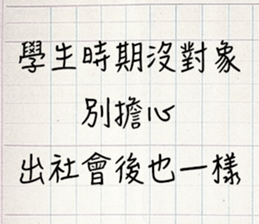 學生時期沒對象
別擔心
出社會後也一樣